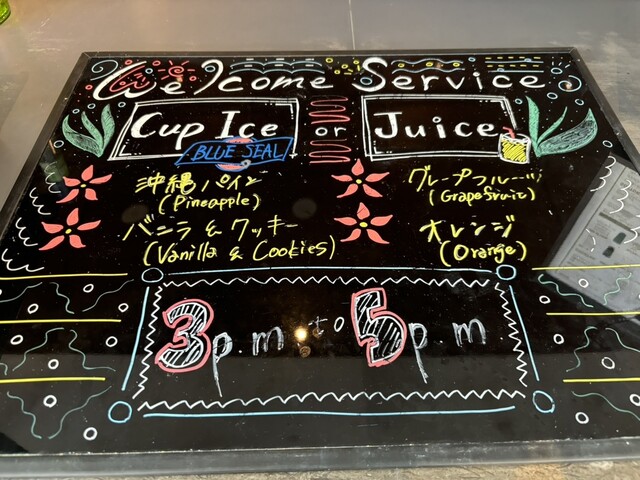 Welcome Service
Cup Ice or Juice
BLUE SEAL
沖縄パイン グレープフルーツ
(Pineapple) (Grapefruit)
バニラ & クッキー オレンジ
(Vanilla & Cookies) (Orange)
3p.m to 5p m